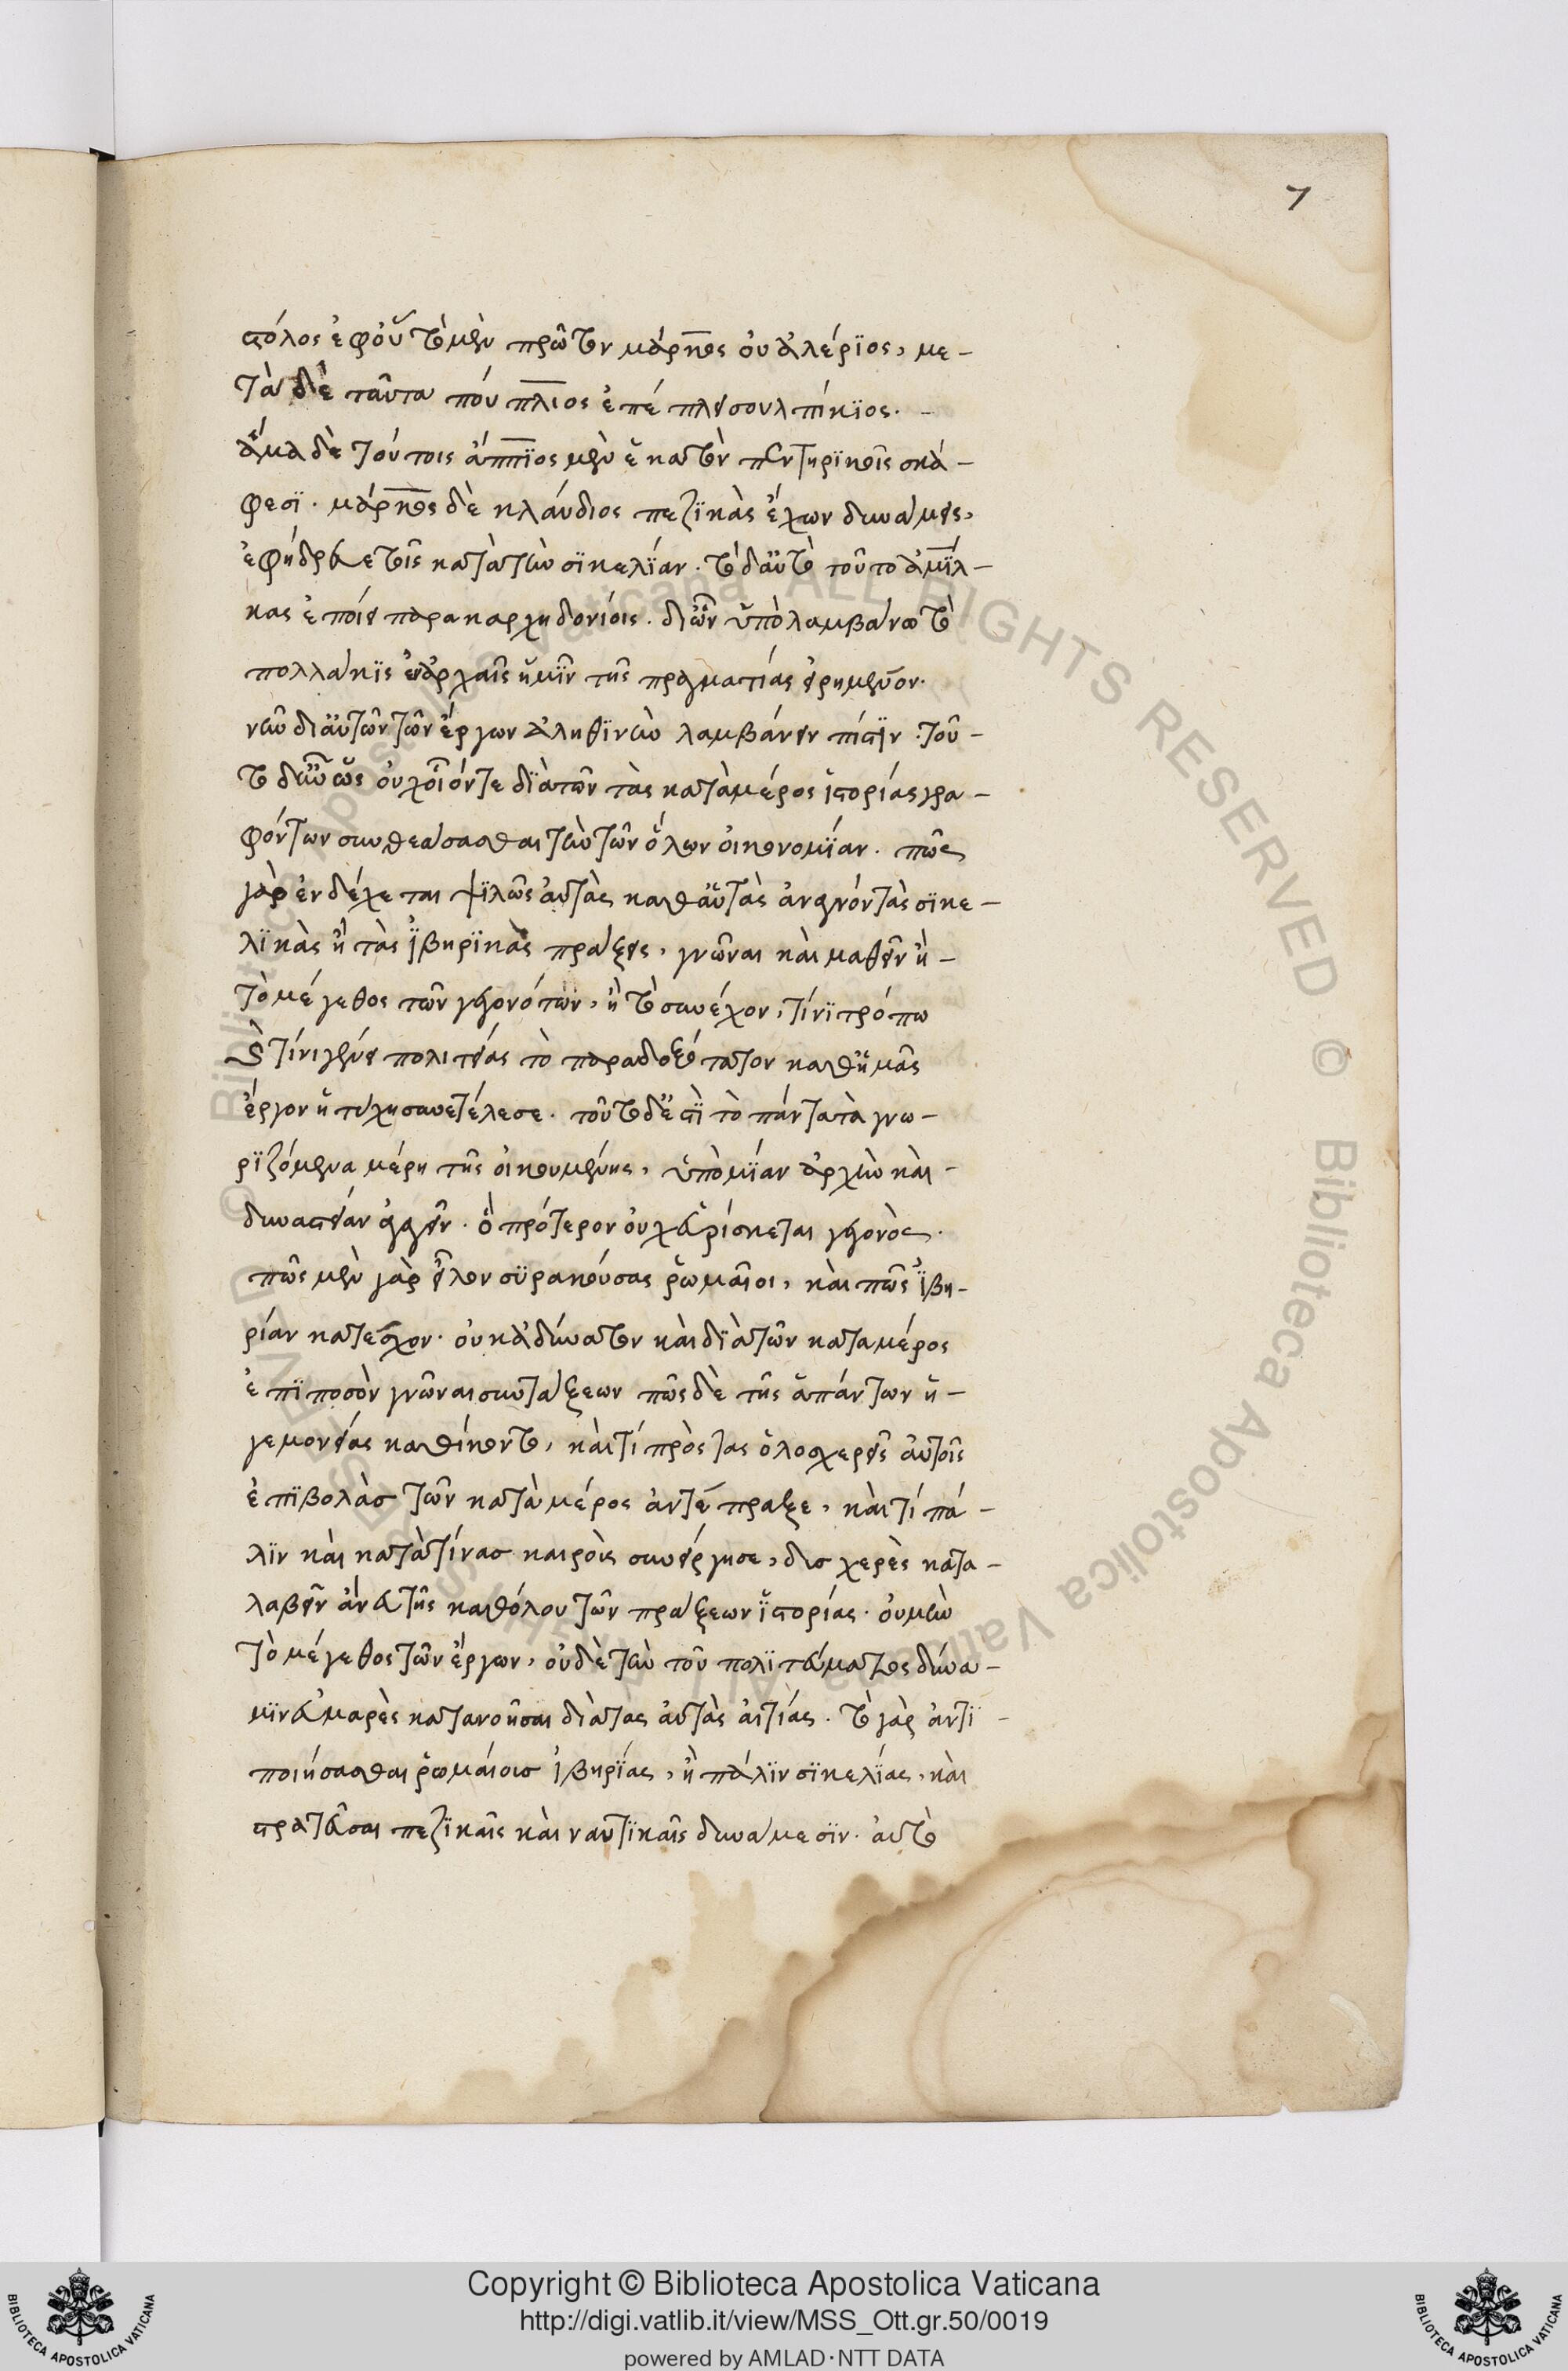 7
στόλος ἐφ' οὗ τὸ μὲν πρῶτον μάρκος οὐαλέριος, με-
τὰ δὲ ταῦτα πούπλιος ἐπέπλει σουλπίκϊος. -
ἅμα δὲ τούτοις ἄππϊος μὲν ἑκατὸν πεντηρϊκοῖς σκά-
φεσϊ. μάρκος δὲ κλαύδιος πεζϊκὰς ἔχων δυνάμεις,
ἐφήδρευε τοῖς κατὰ τὴν σϊκελΐαν. τὸ δ' αὐτὸ τοῦτο ἀμΐλ-
κας ἐποίει παρὰ καρχηδονίοις. δι' ὧν ὑπολαμβάνω τὸ
πολλάκϊς ἐν ἀρχαῖς ἡμῖν τῆς πραγματείας εἰρημένον.
νῦν δι' αὐτῶν τῶν ἔργων ἀληθϊνὴν λαμβάνειν πίστϊν. τοῦ-
το δ' ἦν ὡς οὐχ οἷόν τε δϊὰ τῶν τὰς κατὰ μέρος ἱστορίας γρα-
φόντων συνθεάσασθαι τὴν τῶν ὅλων οἰκονομΐαν. πῶς
γὰρ ἐνδέχεται ψϊλῶς αὐτὰς καθ' αὑτὰς ἀναγνόντα τὰς σϊκε-
λϊκὰς ἢ τὰς ἰβηρϊκὰς πράξεις, γνῶναι καὶ μαθεῖν ἢ -
τὸ μέγεθος τῶν γεγονότων, ἢ τὸ συνέχον, τίνϊ τρόπω
καὶ τίνι γένει πολιτείας τὸ παραδοξότατον καθ' ἡμᾶς
ἔργον ἡ τύχη συνετέλεσε. τοῦτο δ' ἔστϊ τὸ πάντα τὰ γνω-
ρϊζόμενα μέρη τῆς οἰκουμένης, ὑπὸ μΐαν ἀρχὴν καὶ -
δυναστείαν ἀγαγεῖν. ὃ πρότερον οὐχ εὑρίσκεται γεγονὸς.
πῶς μὲν γὰρ εἷλον σϋρακούσας ῥωμαῖοι, καὶ πῶς ἰβη-
ρίαν κατέσχον. οὐκ ἀδύνατον καὶ δϊὰ τῶν κατὰ μέρος
ἐπϊ ποσὸν γνῶναι συντάξεων πῶς δὲ τῆς ἁπάντων ἡ-
γεμονείας καθίκοντο, καὶ τί πρὸς τας ὁλοσχερεῖς αὐτοῖς
ἐπϊβολὰσ τῶν κατὰ μέρος ἀντέπραξε, καὶ τί πά-
λϊν καὶ κατὰ τίνασ καιροὺς συνείργησε, δυσχερὲς κατα-
λαβεῖν ἄνευ τῆς καθόλου τῶν πράξεων ἱστορίας. οὐ μὴν
τὸ μέγεθος τῶν ἔργων, οὐδὲ τὴν τοῦ πολϊτεύματος δύνα-
μϊν εὐμαρὲς κατανοῆσαι διὰ τας αὐτὰς αἰτίας. τὸ γὰρ ἀντϊ-
ποιήσασθαι ῥωμαίουσ ἰβηρΐας, ἢ πάλϊν σϊκελΐας, καὶ
στρατεῦσαι πεζϊκαῖς καὶ ναυτϊκαῖς δυνάμεσϊν. αὐτὸ
Copyright © Biblioteca Apostolica Vaticana
http://digi.vatlib.it/view/MSS_Ott.gr.50/0019
powered by AMLAD·NTT DATA